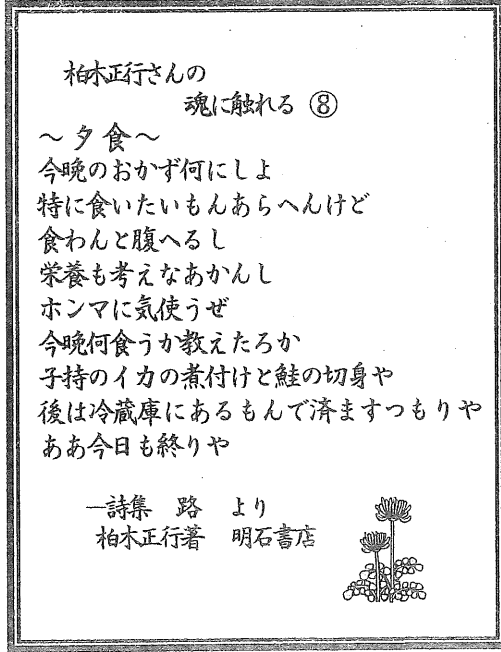 柏木正行さんの
魂に触れる ⑧
～夕食～
今晩のおかず何にしよ
特に食いたいもんあらへんけど
食わんと腹へるし
栄養も考えなあかんし
ホンマに気使うぜ
今晩何食うか教えたろか
子持のイカの煮付けと鮭の切身や
後は冷蔵庫にあるもんで済ますつもりや
ああ今日も終りや
―詩集 路 より
柏木正行著 明石書店